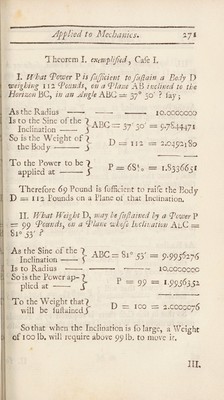 Applied to Mechanics. 271
Theorem I. exemplified, Case I.
I. What Power P is sufficient to sustain a Body D
weighing 112 Pounds, on a Plane AB inclined to the
Horizon BC, in an Angle ABC = 37° 50′ ? say ;
As the Radius 10.0000000
Is to the Sine of the
Inclination ABC = 37° 50′ = 9.7844471
So is the Weight of
the Body D = 112 = 2.0492180
To the Power to be
applied at P = 68 = 1.8336651
Therefore 69 Pound is sufficient to raise the Body
D = 112 Pounds on a Plane of that Inclination.
II. What Weight D, may be sustained by a Power P
= 99 Pounds, on a Plane whose Inclination ABC =
81° 53′ ?
As the Sine of the
Inclination ABC = 81° 53′ = 9.9956276
Is to Radius 10.0000000
So is the Power ap-
plied at P = 99 = 1.9956352
To the Weight that
will be sustained D = 100 = 2.0000076
So that when the Inclination is so large, a Weight
of 100 lb. will require above 99 lb. to move it.
III.